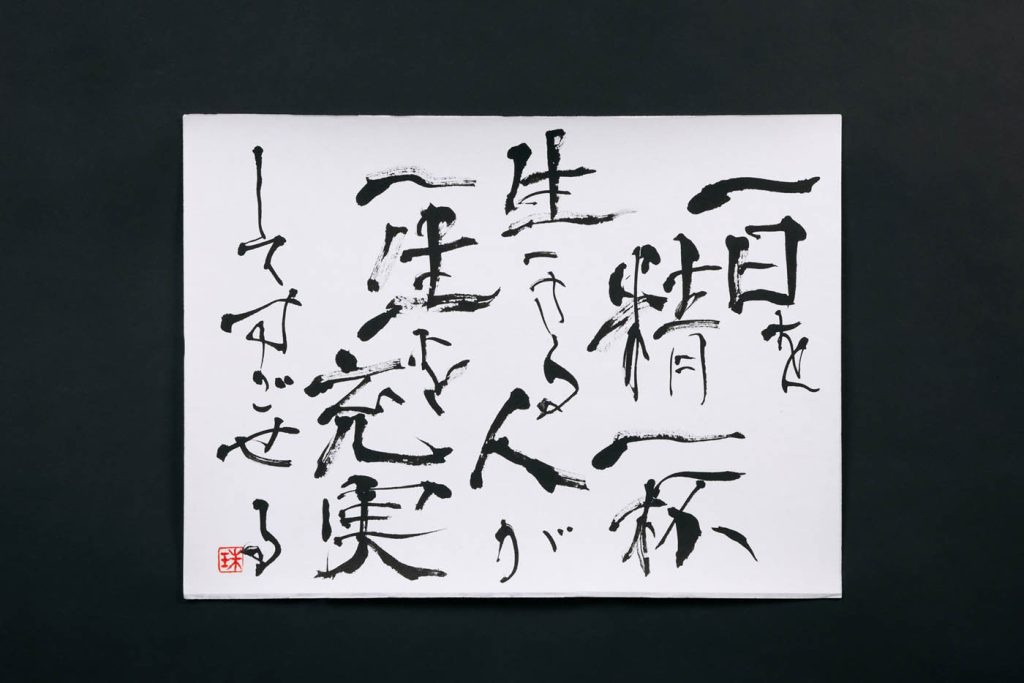 一日を
精一杯
生きる人が
一生を充実
してすごせる
珠